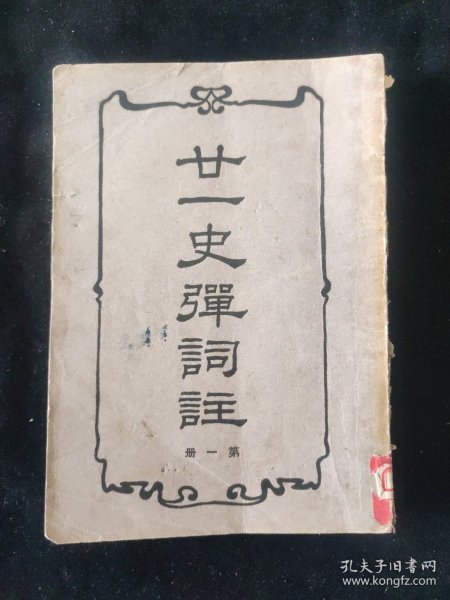 廿一史彈詞註
第一册
孔夫子旧书网
www.kongfz.com